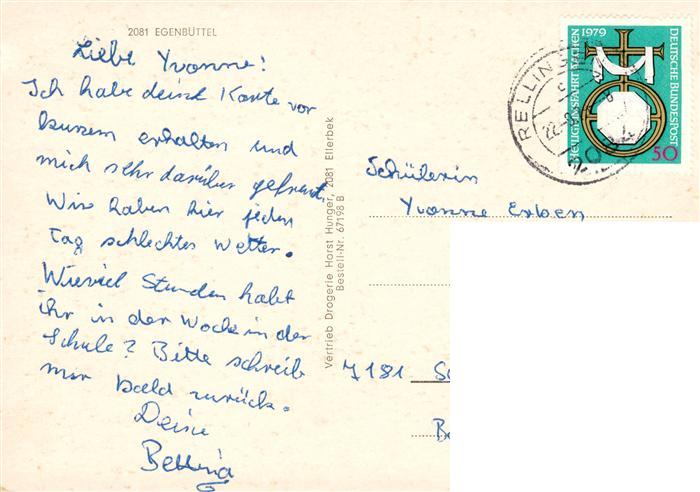 2081 EGENBÜTTEL
Liebe Yvonne!
Ich habe deine Karte vor
kurzem erhalten und
mich sehr darüber gefreut.
Wir haben hier jeden
Tag schlechtes Wetter.
Wieviel Stunden habt
ihr in der Woche in der
Schule? Bitte schreib
mir bald zurück.
Deine
Bettina
Vertrieb Drogerie Horst Hunger, 2081 Ellerbek
Bestell-Nr. 67198 B
1979
HEILIGTUMSFAHRT AACHEN
DEUTSCHE BUNDESPOST
50
RELLIN
Schülerin
Yvonne Erben
7181